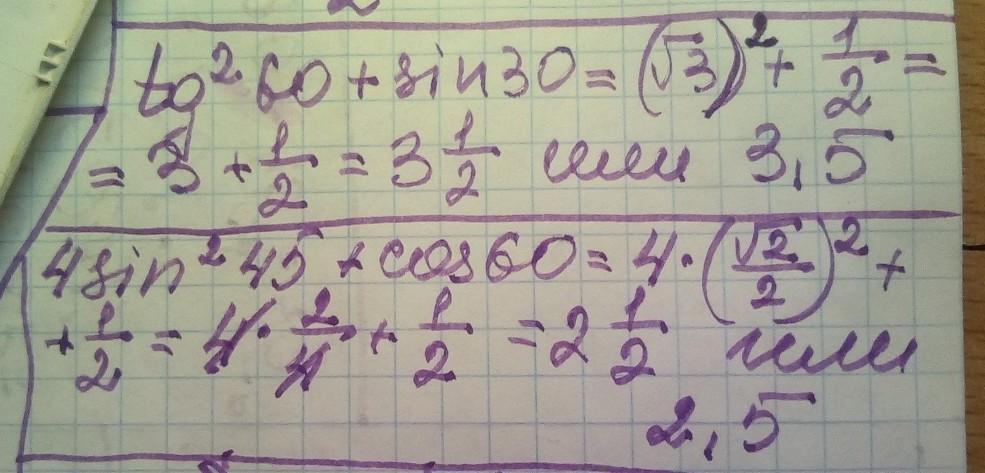 tg² 60 + sin 30 = (√3)² + 1/2 =
= 3 + 1/2 = 3 1/2 или 3,5
4 sin² 45 + cos 60 = 4 · (√2/2)² +
+ 1/2 = 4 · 2/4 + 1/2 = 2 1/2 или
2,5